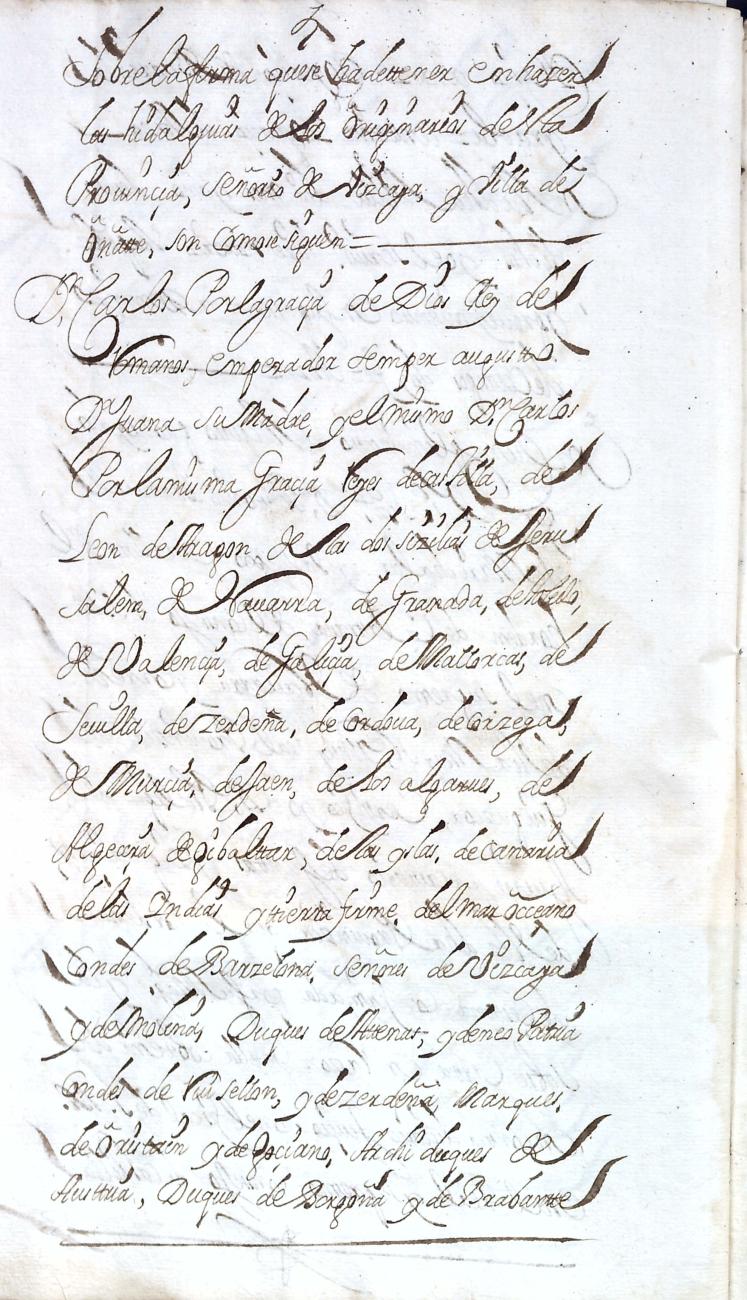 Sobre la forma que se ha dettener en hazer
las hidalguias de los Originarios de Nra
Prouinçia, señorio de Vizcaya, y Villa de
Oñatte, son Como se siguen =
Dn Carlos Por la graçia de Dios Rey de
Romanos, emperador semper augustto.
Da Juana su Madre, y el mismo Dn Carlos
Por la misma Graçia Reyes de castilla, de
Leon de Aragon de las dos sizilias de Jeru
salem, de Nauarra, de Granada, de toledo,
de Valençia, de Galiçia, de Mallorcas, de
Seuilla, de Zerdeña, de Cordoua, de Corzega,
de Murçia, de Jaen, de los algarues, de
Algeçira de gibralttar, de las yslas, de Canaria
de las Indias y tierra firme, del mar Occeano
Condes de Barzelona, señores de Vizcaya
y de Molina, Duques de Athenas, y de neo Patria
Condes de Ruisellon, y de Zerdeña, Marques.
de Oristain y de goçiano, Archiduques de
Austtria, Duques de Borgoña y de Brabantte